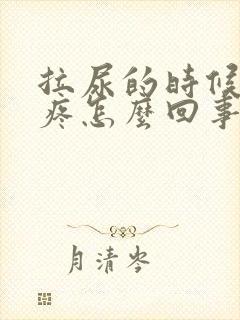 拉尿的時候
疼怎麼回事
月清岑